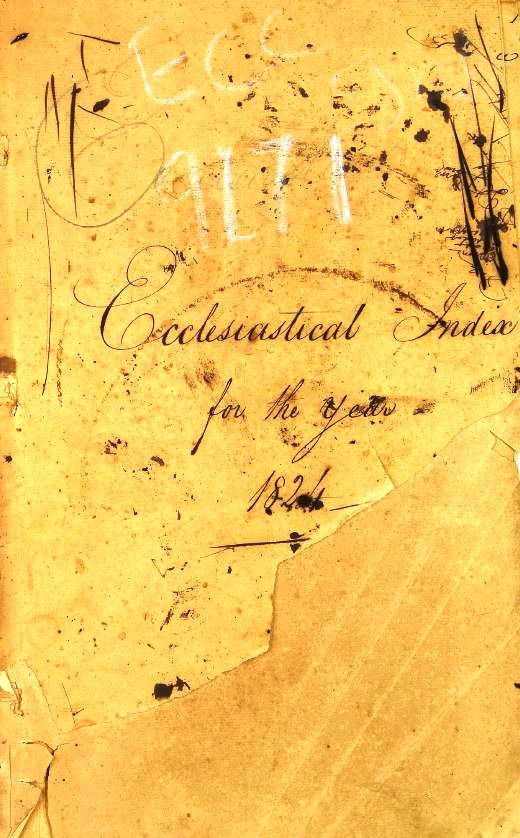 ECC
Ecclesiastical Index
for the year
1824